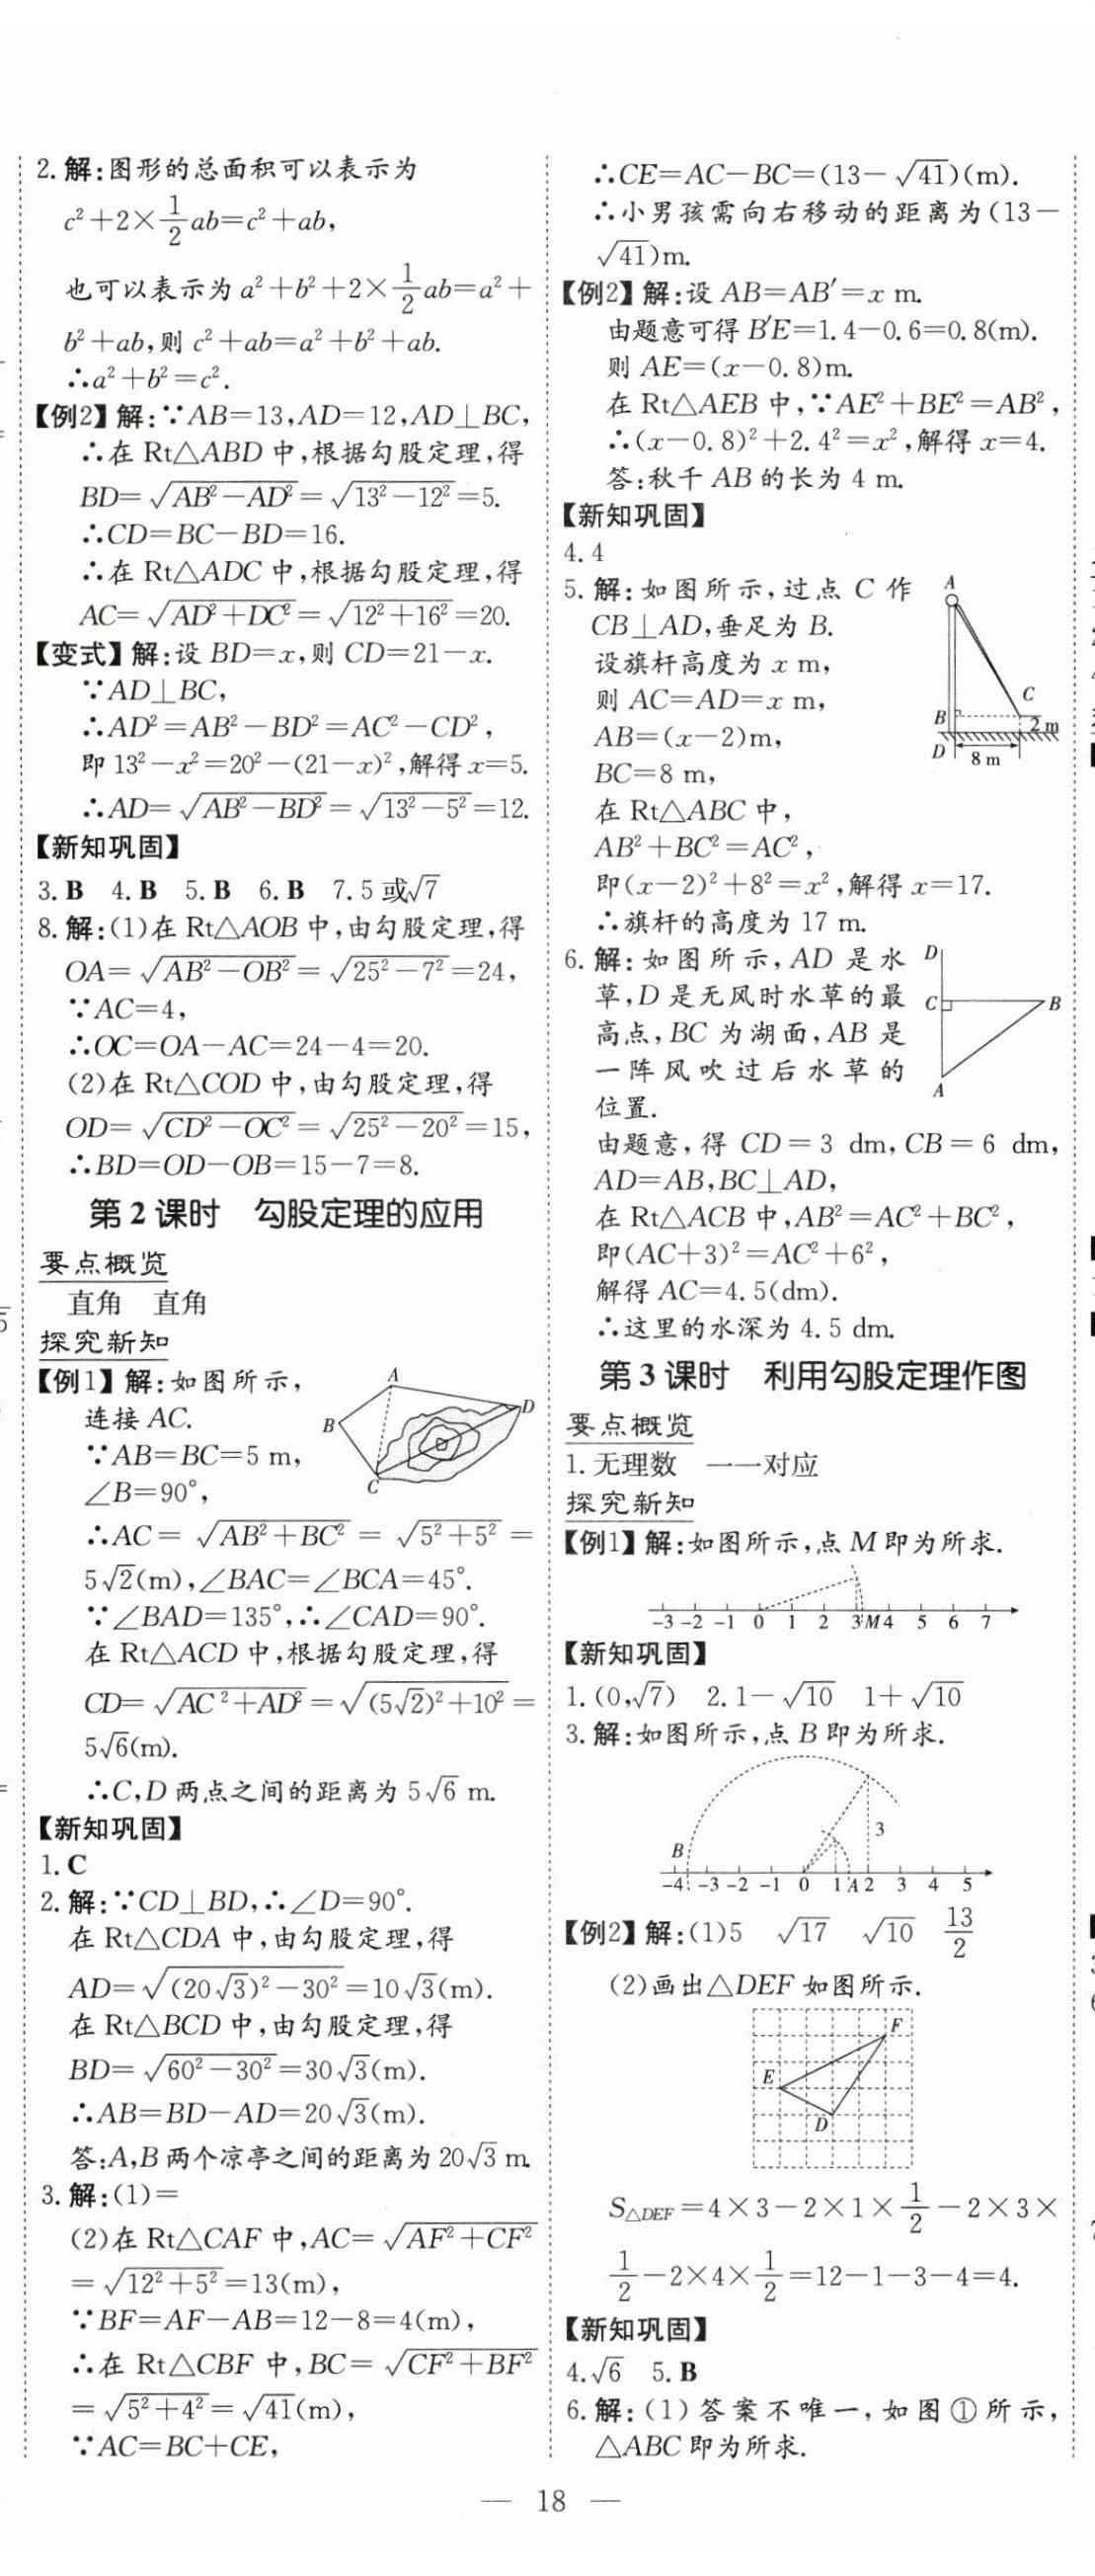 2.解:图形的总面积可以表示为
c²+2×1/2ab=c²+ab,
也可以表示为a²+b²+2×1/2ab=a²+
b²+ab,则c²+ab=a²+b²+ab.
∴a²+b²=c².
【例2】解:∵AB=13,AD=12,AD⊥BC,
∴在Rt△ABD中,根据勾股定理,得
BD=√(AB²-AD²)=√(13²-12²)=5.
∴CD=BC-BD=16.
∴在Rt△ADC中,根据勾股定理,得
AC=√(AD²+DC²)=√(12²+16²)=20.
【变式】解:设BD=x,则CD=21-x.
∵AD⊥BC,
∴AD²=AB²-BD²=AC²-CD²,
即13²-x²=20²-(21-x)²,解得x=5.
∴AD=√(AB²-BD²)=√(13²-5²)=12.
【新知巩固】
3.B 4.B 5.B 6.B 7.5或√7
8.解:(1)在Rt△AOB中,由勾股定理,得
OA=√(AB²-OB²)=√(25²-7²)=24,
∵AC=4,
∴OC=OA-AC=24-4=20.
(2)在Rt△COD中,由勾股定理,得
OD=√(CD²-OC²)=√(25²-20²)=15,
∴BD=OD-OB=15-7=8.
第2课时 勾股定理的应用
要点概览
直角 直角
探究新知
【例1】解:如图所示,
连接AC.
∵AB=BC=5 m,
∠B=90°,
A
B
C
D
∴AC=√(AB²+BC²)=√(5²+5²)=
5√2(m),∠BAC=∠BCA=45°.
∵∠BAD=135°,∴∠CAD=90°.
在Rt△ACD中,根据勾股定理,得
CD=√(AC²+AD²)=√((5√2)²+10²)=
5√6(m).
∴C,D两点之间的距离为5√6 m.
【新知巩固】
1.C
2.解:∵CD⊥BD,∴∠D=90°.
在Rt△CDA中,由勾股定理,得
AD=√((20√3)²-30²)=10√3(m).
在Rt△BCD中,由勾股定理,得
BD=√(60²-30²)=30√3(m).
∴AB=BD-AD=20√3(m).
答:A,B两个凉亭之间的距离为20√3 m.
3.解:(1)=
(2)在Rt△CAF中,AC=√(AF²+CF²)
=√(12²+5²)=13(m),
∵BF=AF-AB=12-8=4(m),
∴在Rt△CBF中,BC=√(CF²+BF²)
=√(5²+4²)=√41(m),
∵AC=BC+CE,
∴CE=AC-BC=(13-√41)(m).
∴小男孩需向右移动的距离为(13-
√41)m.
【例2】解:设AB=AB′=x m.
由题意可得B′E=1.4-0.6=0.8(m).
则AE=(x-0.8)m.
在Rt△AEB中,∵AE²+BE²=AB²,
∴(x-0.8)²+2.4²=x²,解得x=4.
答:秋千AB的长为4 m.
【新知巩固】
4.4
5.解:如图所示,过点C作
CB⊥AD,垂足为B.
设旗杆高度为x m,
则AC=AD=x m,
AB=(x-2)m,
BC=8 m,
A
C
B
2 m
D
8 m
在Rt△ABC中,
AB²+BC²=AC²,
即(x-2)²+8²=x²,解得x=17.
∴旗杆的高度为17 m.
6.解:如图所示,AD是水
草,D是无风时水草的最
高点,BC为湖面,AB是
一阵风吹过后水草的
位置.
D
C
B
A
由题意,得CD=3 dm,CB=6 dm,
AD=AB,BC⊥AD,
在Rt△ACB中,AB²=AC²+BC²,
即(AC+3)²=AC²+6²,
解得AC=4.5(dm).
∴这里的水深为4.5 dm.
第3课时 利用勾股定理作图
要点概览
1.无理数 一一对应
探究新知
【例1】解:如图所示,点M即为所求.
-3 -2 -1 0 1 2 3 M 4 5 6 7
【新知巩固】
1.(0,√7) 2.1-√10 1+√10
3.解:如图所示,点B即为所求.
3
B
-4 -3 -2 -1 0 1 A 2 3 4 5
【例2】解:(1)5 √17 √10 13/2
(2)画出△DEF如图所示.
F
E
D
S△DEF=4×3-2×1×1/2-2×3×
1/2-2×4×1/2=12-1-3-4=4.
【新知巩固】
4.√6 5.B
6.解:(1)答案不唯一,如图①所示,
△ABC即为所求.
— 18 —